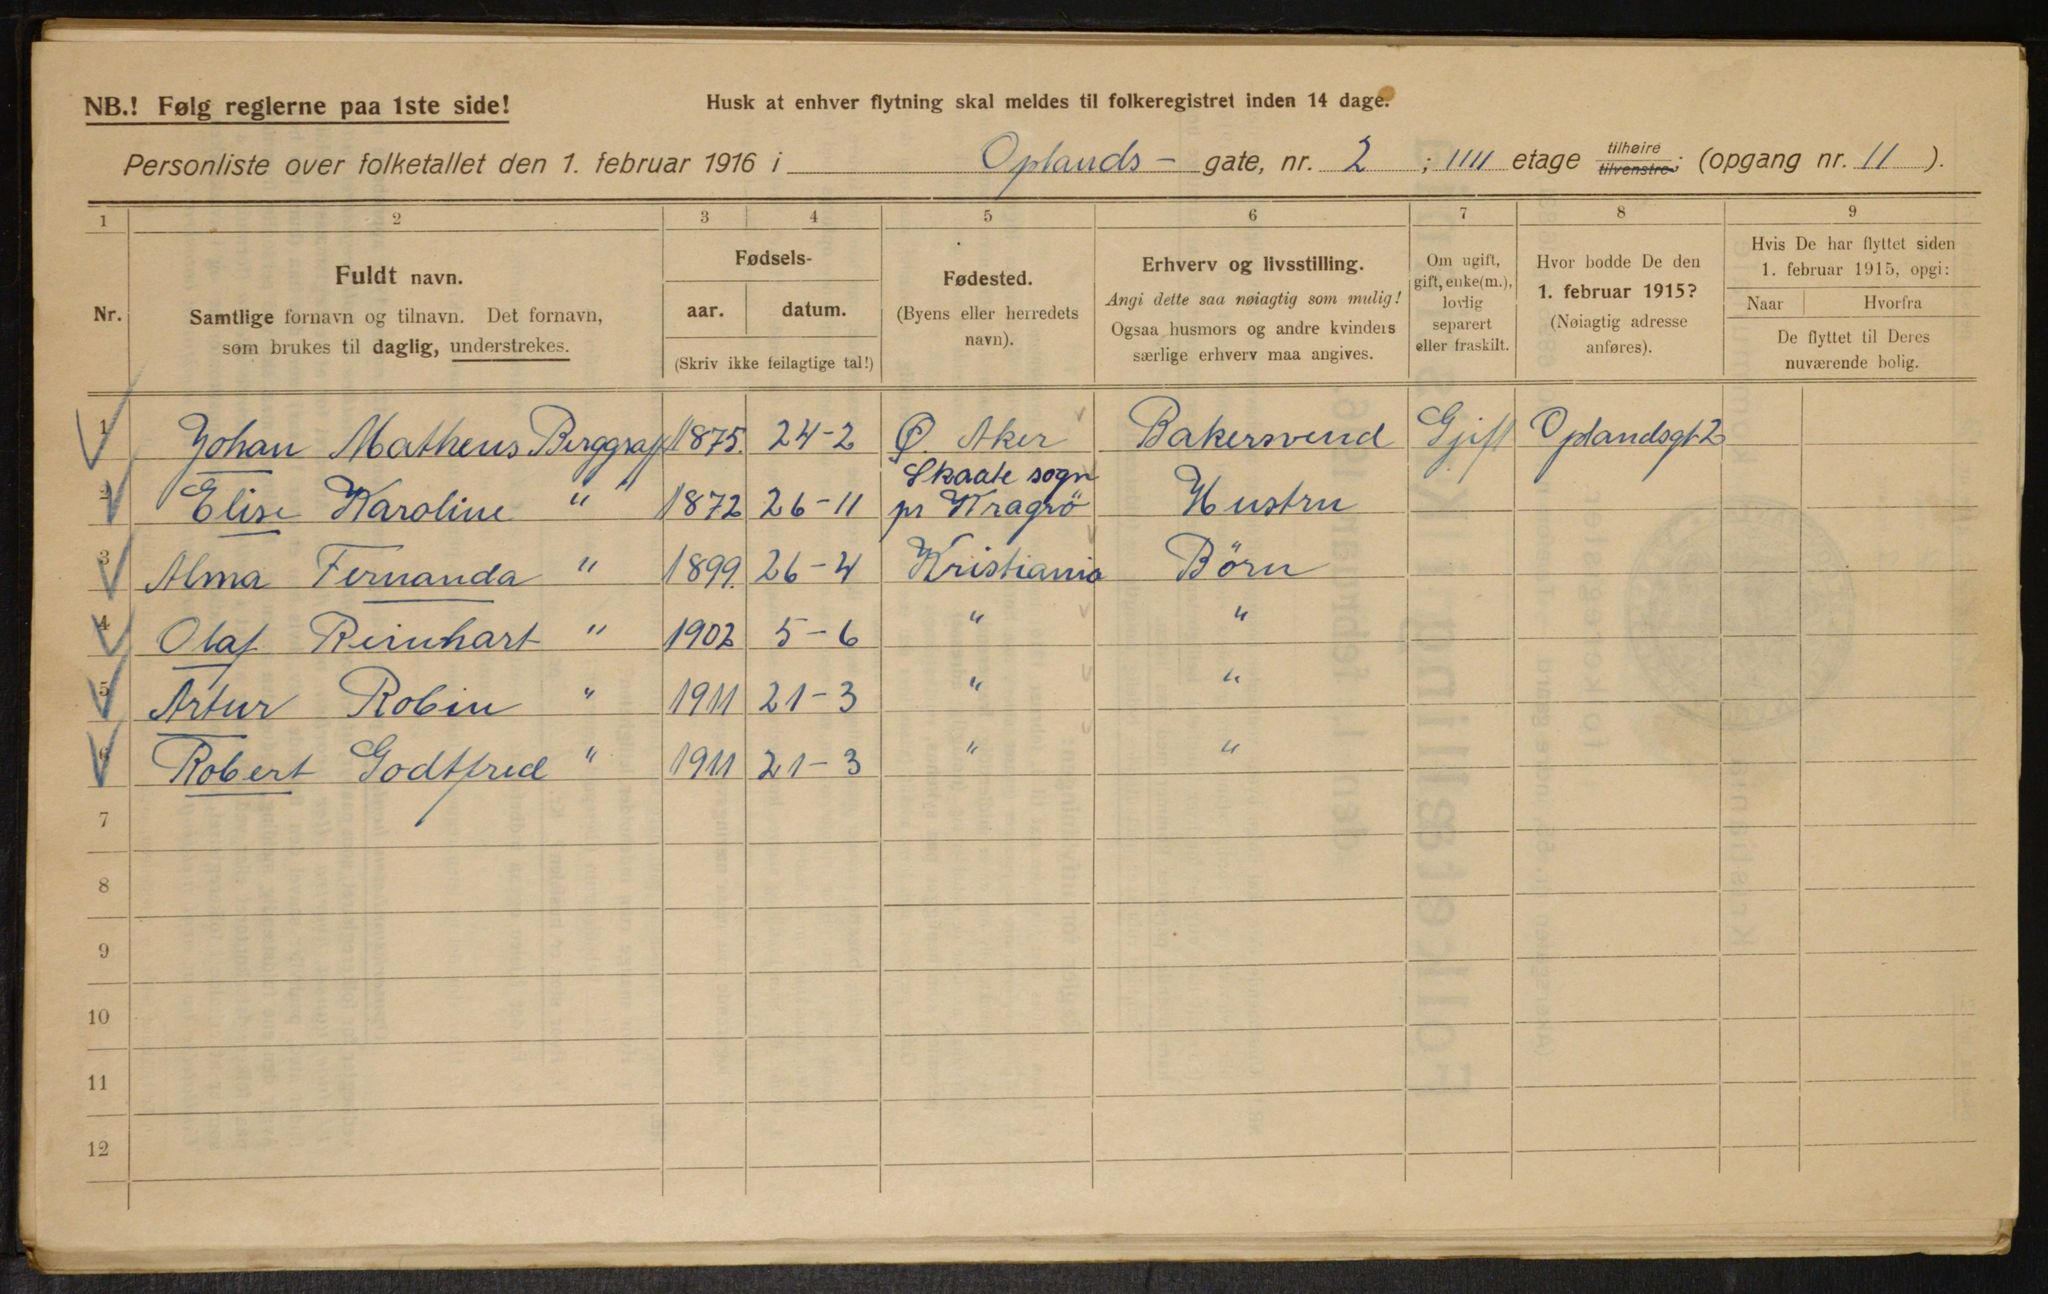 NB.! Følg reglerne paa 1ste side!
Husk at enhver flytning skal meldes til folkeregistret inden 14 dage.
Personliste over folketallet den 1. februar 1916 i Oplands- gate, nr. 2 ; IIII etage tilhøire tilvenstre; (opgang nr. II ).
1 2 3 4 5 6 7 8 9
Nr.
Fuldt navn.
Samtlige fornavn og tilnavn. Det fornavn,
som brukes til daglig, understrekes.
Fødsels-
aar. datum.
(Skriv ikke feilagtige tal!)
Fødested.
(Byens eller herredets
navn).
Erhverv og livsstilling.
Angi dette saa nøiagtig som mulig!
Ogsaa husmors og andre kvinders
særlige erhverv maa angives.
Om ugift,
gift, enke(m.),
lovlig
separert
eller fraskilt.
Hvor bodde De den
1. februar 1915?
(Nøiagtig adresse
anføres).
Hvis De har flyttet siden
1. februar 1915, opgi:
Naar Hvorfra
De flyttet til Deres
nuværende bolig.
1 Johan Matheus Berggraf 1875. 24-2 Ø. Aker Bakersvend Gjift Oplandsgt. 2
2 Elise Karoline " 1872 26-11 Skaate sogn pr Kragrö Hustru
3 Alma Fernanda " 1899. 26-4 Kristiania Børn
4 Olaf Reinhart " 1902 5-6 " "
5 Artur Robin " 1911 21-3 " "
6 Robert Godtfred " 1911 21-3 " "
7
8
9
10
11
12